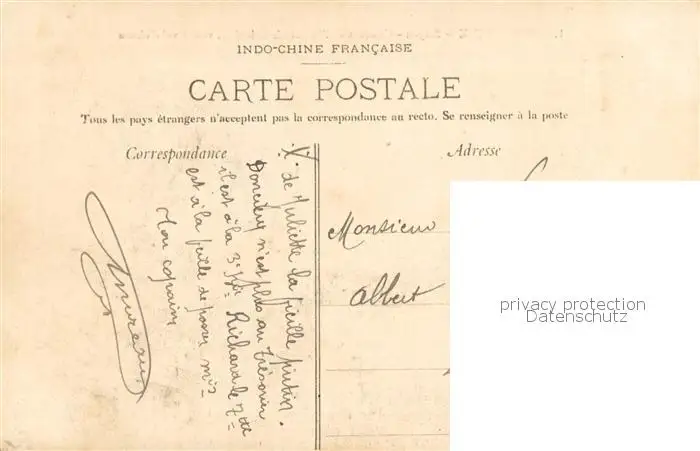 INDO-CHINE FRANÇAISE
CARTE POSTALE
Tous les pays étrangers n'acceptent pas la correspondance au recto. Se renseigner à la poste
Correspondance
Adresse
de Juliette la
n'est plus au trésorier
il est à la 3e Richard le 7me
est à la de
Mon copain
Monsieur
Albert
privacy protection
Datenschutz